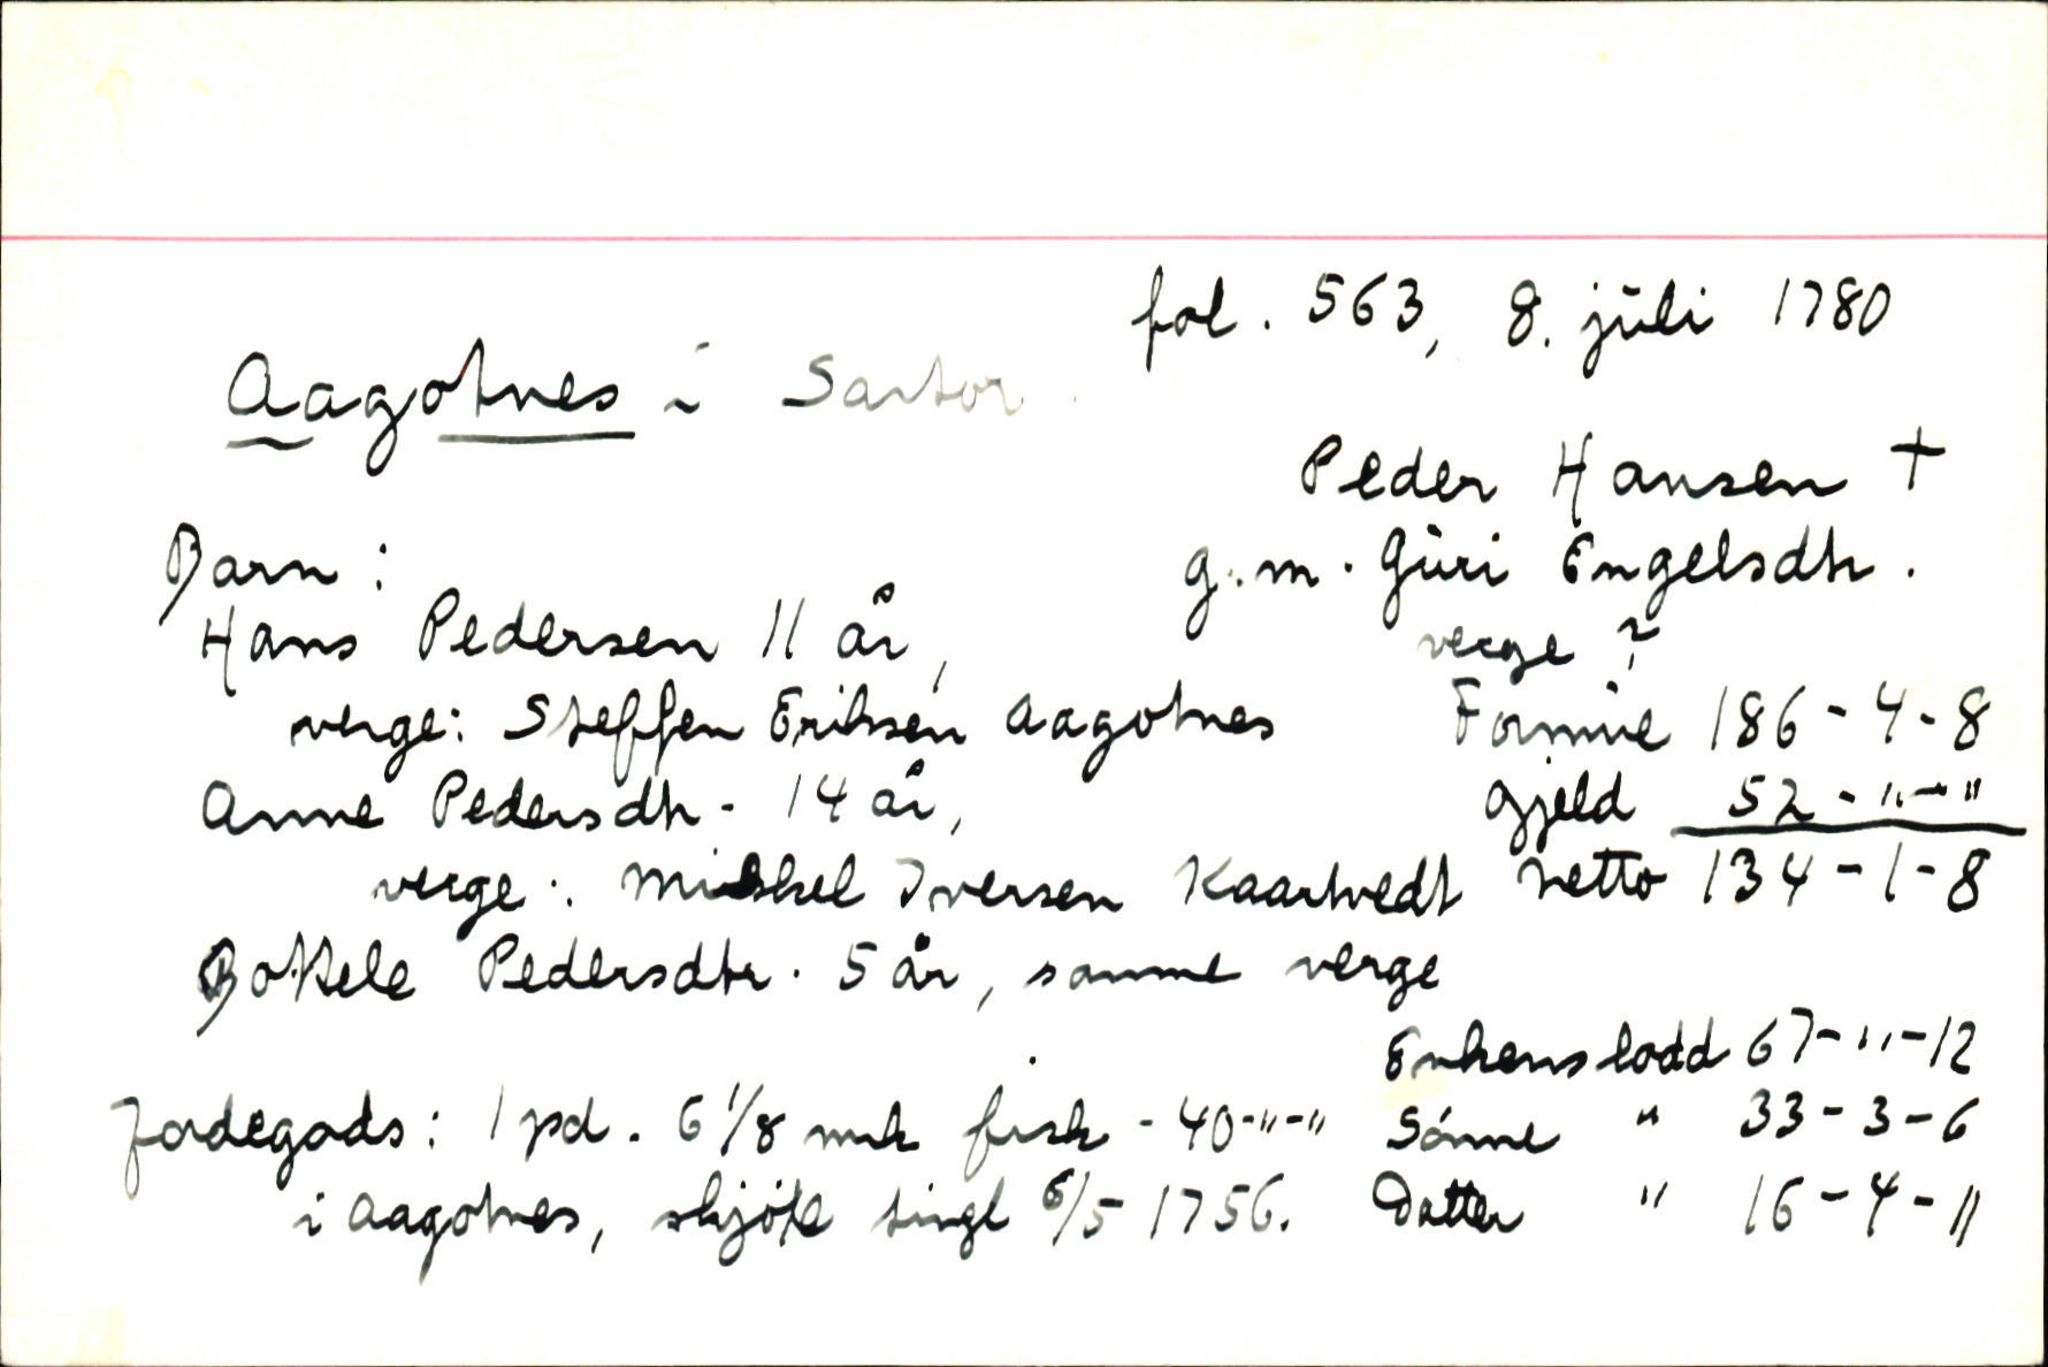 fol. 563, 8. juli 1780
Aagotnes i Sartor.
Peder Hansen +
g.m. Guri Engelsdtr.
verge ?
Barn:
Hans Pedersen 11 år,
verge: Steffen Eriksen Aagotnes
Formue 186-4-8
Anne Pedersdtr - 14 år,
gjeld 52-"-"
verge: Mikkel Iversen Kaartvedt
netto 134-1-8
Bottele Pedersdtr. 5 år, samme verge
Enkens lodd 67-"-12
Jordegods: 1 pd. 6 1/8 mk fisk - 40-"-"
Sønne " 33-3-6
i Aagotnes, skjøte tingl 6/5 1756.
Datter " 16-4-11